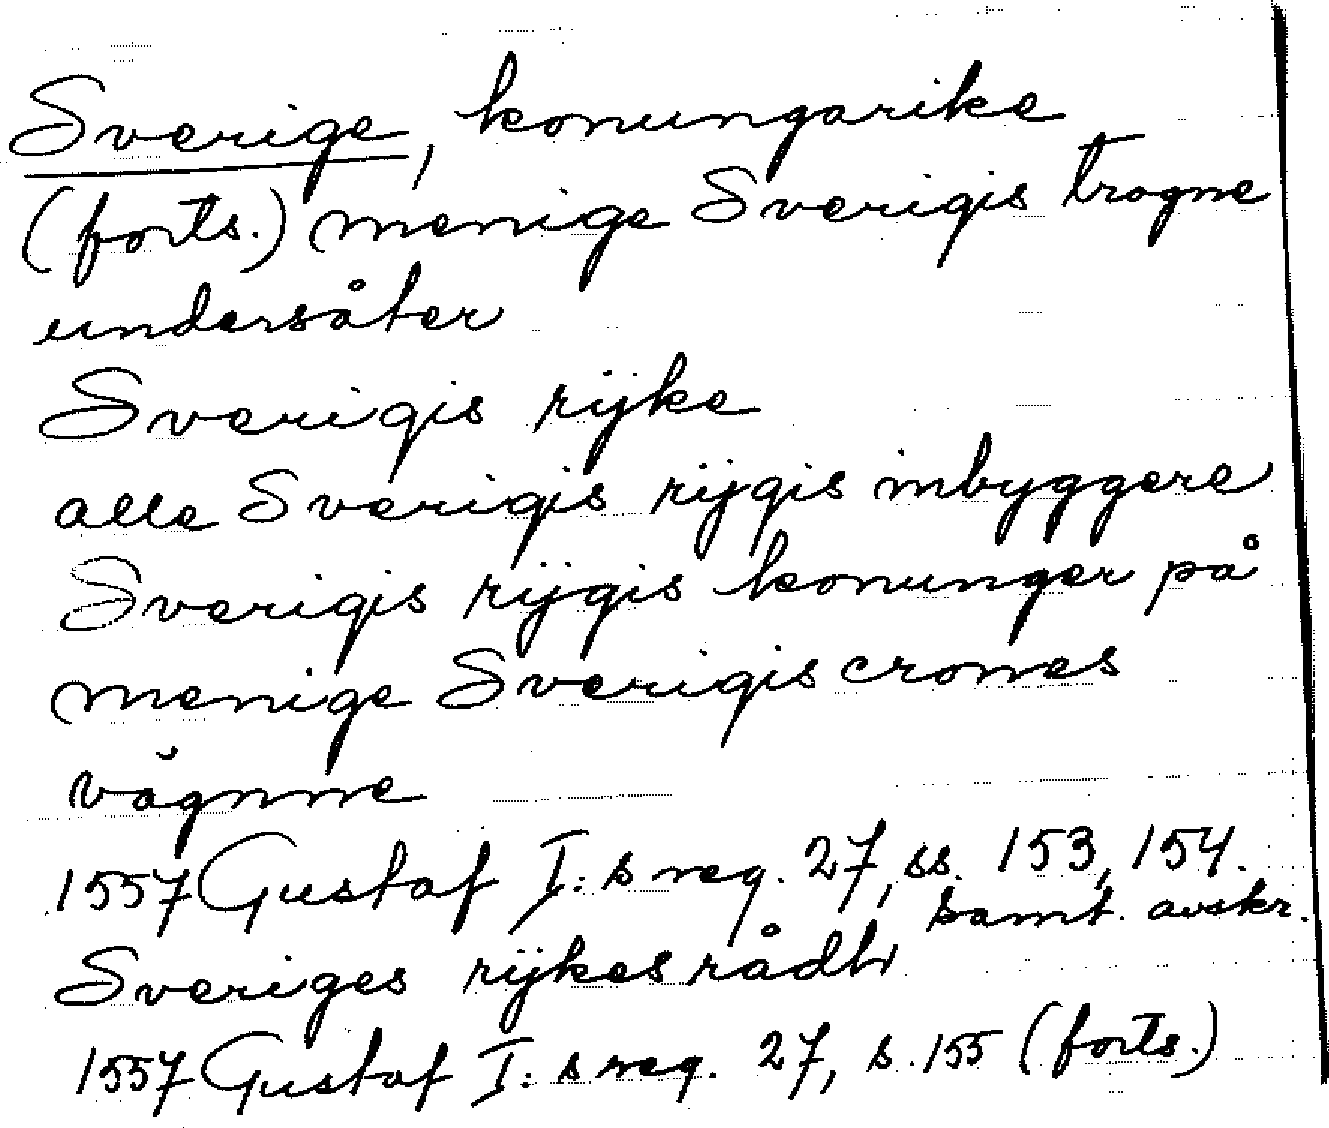 Sverige, konungarike
(forts.) menige Sverigis trogne
undersåter
Sverigis rijke
alle Sverigis rijgis inbyggere
Sverigis rijgis konunger på
menige Sverigis crones
vägnne
1557 Gustaf I:s reg. 27, ss. 153, 154.
samt. avskr.
Sveriges rijkes rådh
1557 Gustaf I:s reg. 27, s. 155 (forts.)